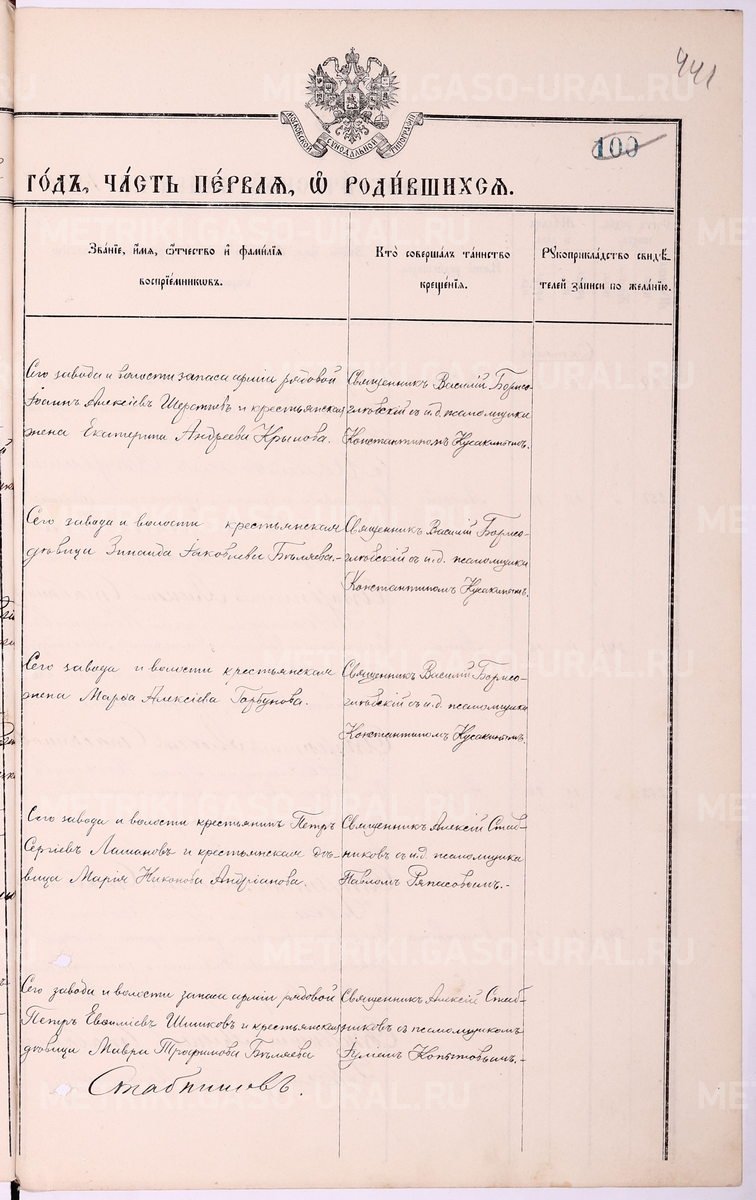 441
МОСКОВСКОЙ СѴНОДАЛЬНОЙ ТИПОГРАФІИ
100
ГО́ДЪ, ЧА́СТЬ ПЕ́РВАѦ, Ѡ҆ РОДИ́ВШИХСѦ.
Зва́нїе, и҆́мѧ, ѻ҆́тчество и҆ фамѝлїѧ
воспрїе́мникѡвъ.
Кто̀ соверша́лъ та́инство
креще́нїѧ.
Рꙋкоприкла́дство свидѣ́-
телей за́писи по жела́нїю.
Сего завода и волости запаса арміи рядовой
Іоаннъ Алексѣевъ Шерстневъ и крестьянская
жена Екатерина Андреева Крылова.
Священникъ Василій Борисо-
глѣбскій съ и.д. псаломщика
Константиномъ Кусакинымъ.
Сего завода и волости крестьянская
дѣвица Зинаида Іаковлева Бѣляева.-
Священникъ Василій Борисо-
глѣбскій съ и.д. псаломщика
Константиномъ Кусакинымъ.
Сего завода и волости крестьянская
жена Марѳа Алексіева Горбунова.
Священникъ Василій Борисо-
глѣбскій съ и.д. псаломщика
Константиномъ Кусакинымъ.
Сего завода и волости крестьянинъ Петръ
Сергіевъ Лашановъ и крестьянская дѣ-
вица Марія Никонова Андріанова.
Священникъ Алексій Стаб-
никовъ съ и.д. псаломщика
Павломъ Ряпасовымъ.-
Сего завода и волости запаса арміи рядовой
Петръ Евѳиміевъ Шишковъ и крестьянская
дѣвица Мавра Трофимова Бѣляева
Священникъ Алексій Стаб-
никовъ съ псаломщикомъ
Іуліан Копытовымъ.-
Стабниковъ.
METRIKI.GASO-URAL.RU